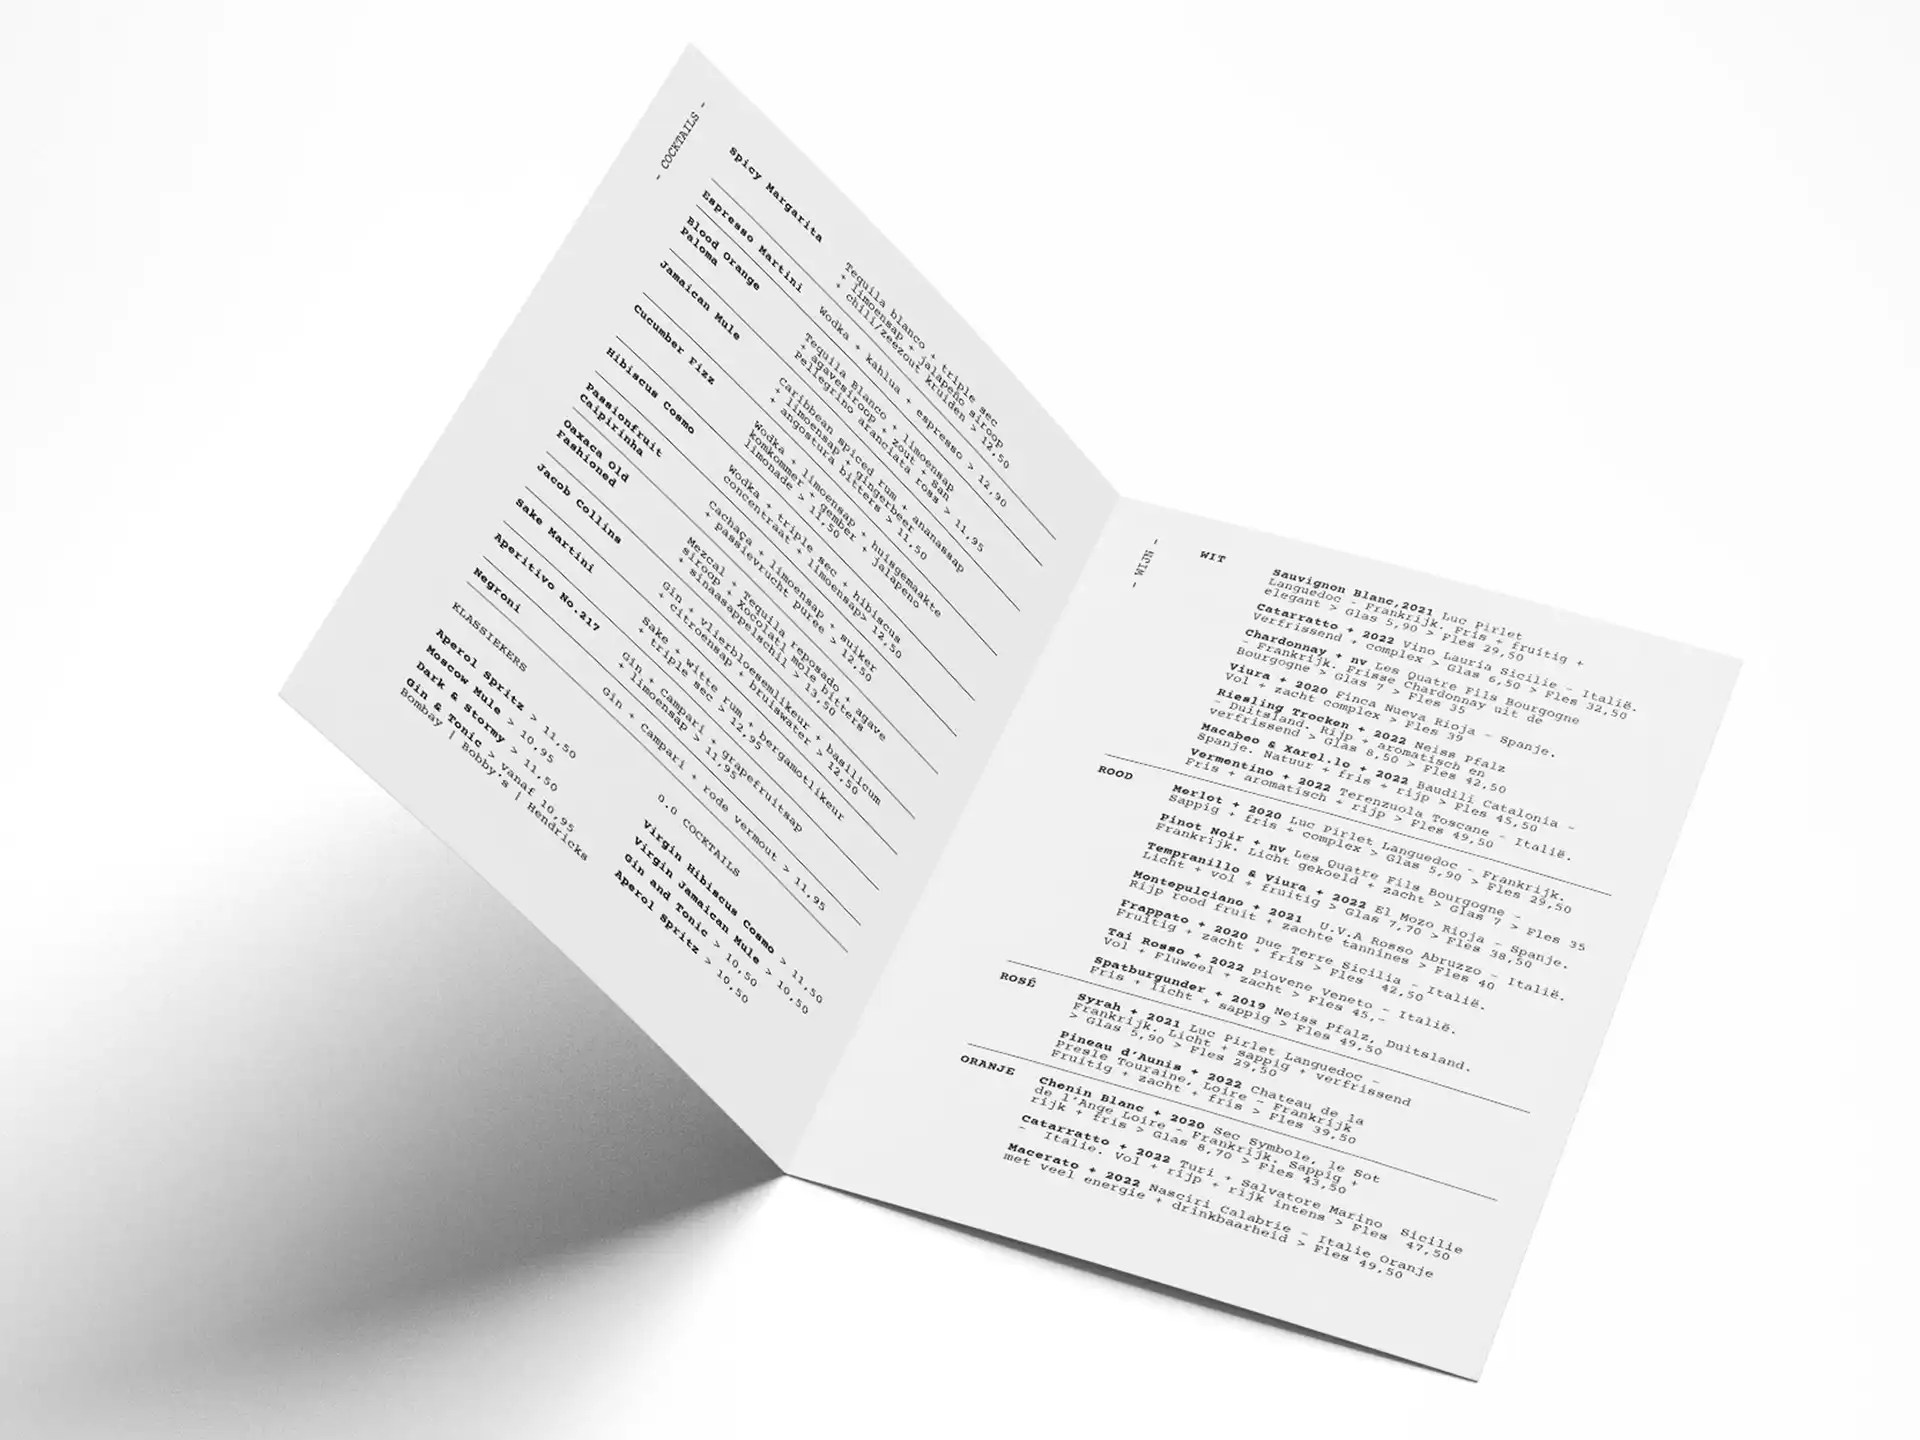 - COCKTAILS -
Spicy Margarita
Tequila blanco + triple sec
+ limoensap + jalapeño siroop
+ chili/zeezout kruiden > 12,50
Espresso Martini
Wodka + kahlua + espresso > 12,90
Blood Orange
Paloma
Tequila Blanco + limoensap
+ agavesiroop + zout + San
Pellegrino aranciata ross > 11,95
Jamaican Mule
Caribbean spiced rum + ananassap
+ limoensap + gingerbeer
+ angostura bitters > 11,50
Cucumber Fizz
Wodka + limoensap + huisgemaakte
komkommer + gember + jalapeno
limonade > 11,50
Hibiscus Cosmo
Wodka + triple sec + hibiscus
concentraat + limoensap> 12,50
Passionfruit
Caipirinha
Cachaça + limoensap + suiker
+ passievrucht puree > 12,50
Oaxaca Old
Fashioned
Mezcal + Tequila reposado + agave
siroop + Xocolatl mole bitters
+ sinaasappelschil > 13,50
Jacob Collins
Gin + vlierbloesemlikeur + basilicum
+ citroensap + bruiswater > 12,50
Sake Martini
Sake + witte rum + bergamotlikeur
+ triple sec > 12,95
Aperitivo No.217
Gin + Campari + grapefruitsap
+ limoensap > 11,95
Negroni
Gin + campari + rode vermout > 11,95
KLASSIEKERS
Aperol Spritz > 11,50
Moscow Mule > 10,95
Dark & Stormy > 11,50
Gin & Tonic > vanaf 10,95
Bombay | Bobby's | Hendricks
0.0 COCKTAILS
Virgin Hibiscus Cosmo > 11,50
Virgin Jamaican Mule > 10,50
Gin and Tonic > 10,50
Aperol Spritz > 10,50
- WIJN -
WIT
Sauvignon Blanc,2021 Luc Pirlet
Languedoc - Frankrijk. Fris + fruitig +
elegant > Glas 5,90 > Fles 29,50
Catarratto + 2022 Vino Lauria Sicilie - Italië.
Verfrissend + complex > Glas 6,50 > Fles 32,50
Chardonnay + nv Les Quatre Fils Bourgogne
- Frankrijk. Frisse Chardonnay uit de
Bourgogne > Glas 7 > Fles 35
Viura + 2020 Finca Nueva Rioja - Spanje.
Vol + zacht complex > Fles 39
Riesling Trocken + 2022 Neiss Pfalz
- Duitsland. Rijp + aromatisch en
verfrissend > Glas 8,50 > Fles 42,50
Macabeo & Xarel.lo + 2022 Baudili Catalonia -
Spanje. Natuur + fris + rijp > Fles 45,50
Vermentino + 2022 Terenzuola Toscane - Italië.
Fris + aromatisch + rijp > Fles 49,50
ROOD
Merlot + 2020 Luc Pirlet Languedoc - Frankrijk.
Sappig + fris + complex > Glas 5,90 > Fles 29,50
Pinot Noir + nv Les Quatre Fils Bourgogne -
Frankrijk. Licht gekoeld + zacht > Glas 7 > Fles 35
Tempranillo & Viura + 2022 El Mozo Rioja - Spanje.
Licht + vol + fruitig > Glas 7,70 > Fles 38,50
Montepulciano + 2021 U.V.A Rosso Abruzzo - Italië.
Rijp rood fruit + zachte tannines > Fles 40
Frappato + 2020 Due Terre Sicilia - Italië.
Fruitig + zacht + fris > Fles 42,50
Tai Rosso + 2022 Piovene Veneto - Italië.
Vol + Fluweel + zacht > Fles 45,-
Spatburgunder + 2019 Neiss Pfalz, Duitsland.
Fris + licht + sappig > Fles 49,50
ROSÉ
Syrah + 2021 Luc Pirlet Languedoc -
Frankrijk. Licht + sappig + verfrissend
> Glas 5,90 > Fles 29,50
Pineau d'Aunis + 2022 Chateau de la
Presle Touraine, Loire - Frankrijk
Fruitig + zacht + fris > Fles 39,50
ORANJE
Chenin Blanc + 2020 Sec Symbole, le Sot
de l'Ange Loire - Frankrijk. Sappig +
rijk + fris > Glas 8,70 > Fles 43,50
Catarratto + 2022 Turi + Salvatore Marino Sicilie
- Italie. Vol + rijp + rijk intens > Fles 47,50
Macerato + 2022 Nasciri Calabrie - Italie Oranje
met veel energie + drinkbaarheid > Fles 49,50